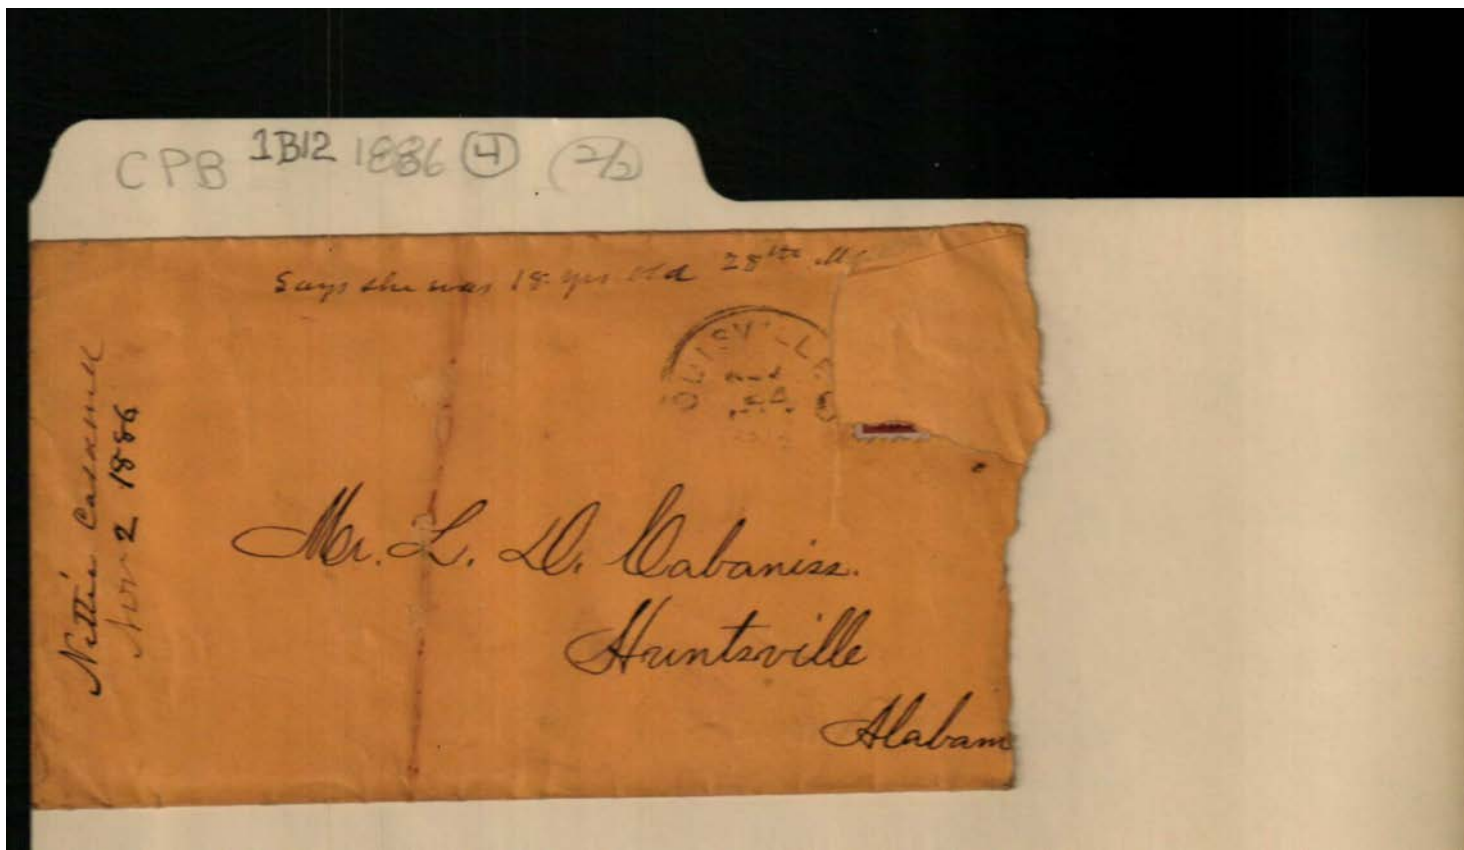 CPB 1B12 1886 (4) (2/2)
Says she was 18 yrs old 28th
OUISVILLE
Nettie
Nov 2 1886
Mr. L. D. Cabaniss.
Huntsville
Alabam